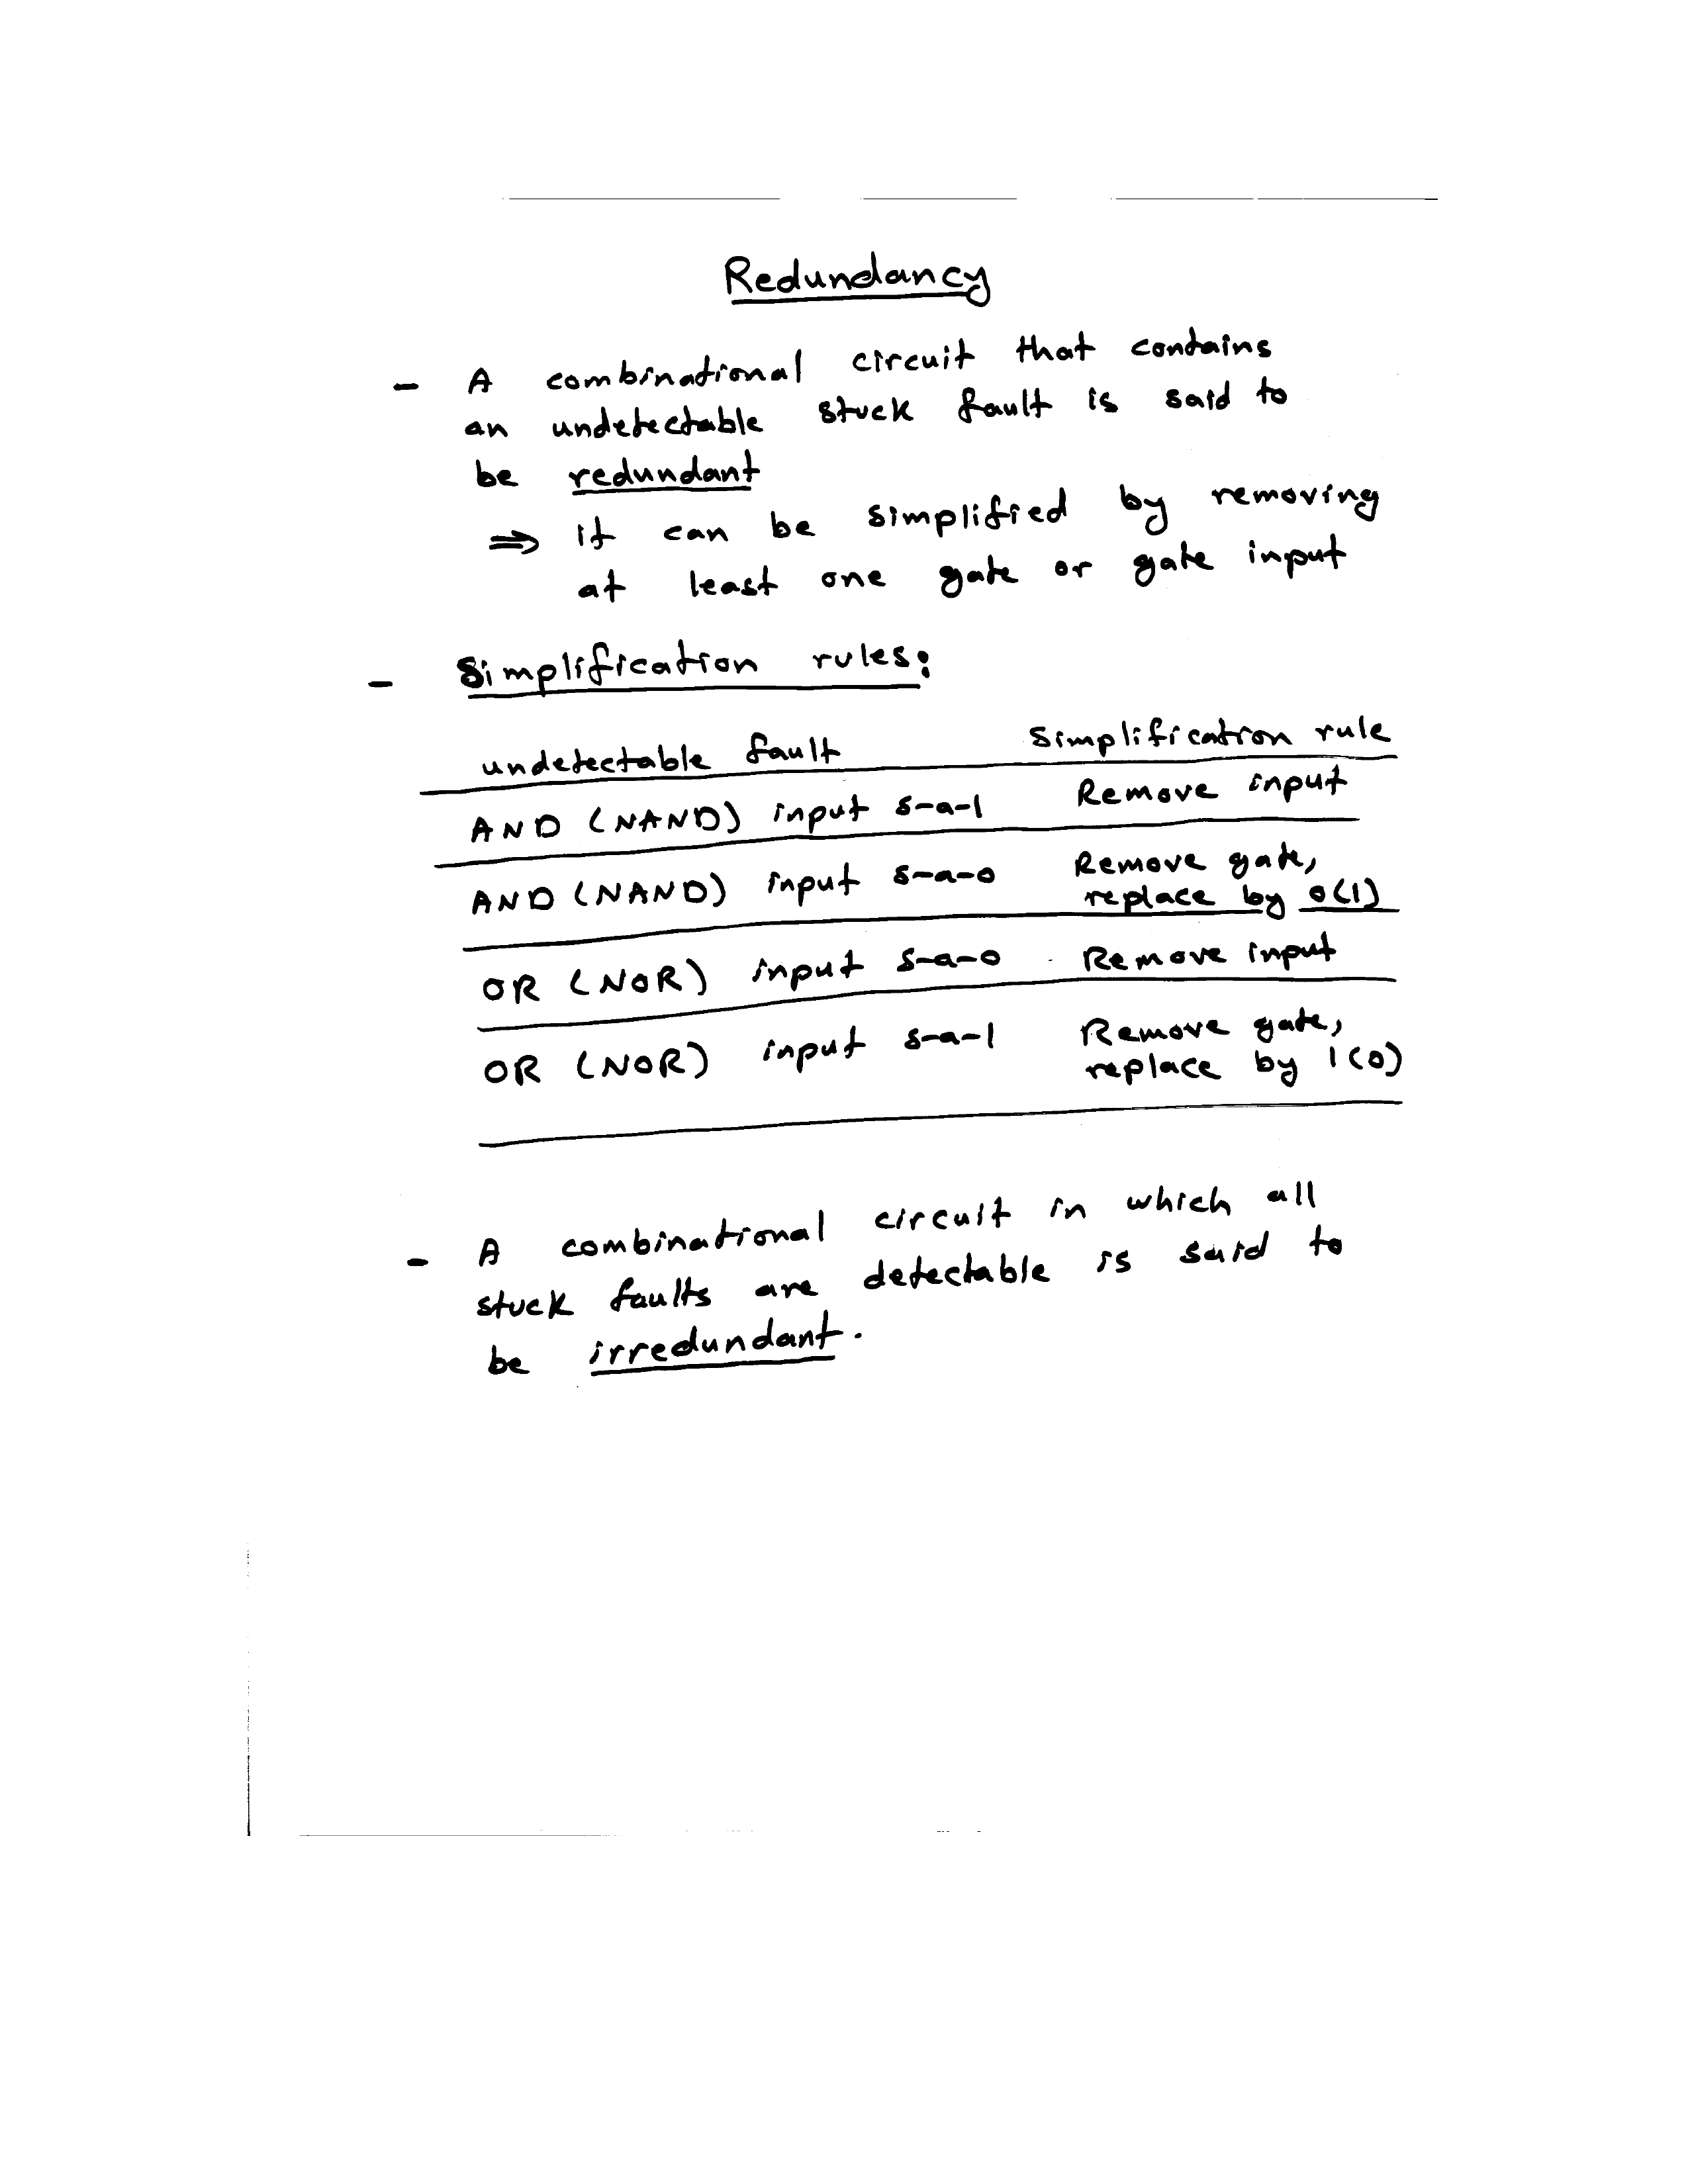 Redundancy
- A combinational circuit that contains
an undetectable stuck fault is said to
be redundant
⇒ it can be simplified by removing
at least one gate or gate input
- Simplification rules:
undetectable fault Simplification rule
AND (NAND) input s-a-1 Remove input
AND (NAND) input s-a-0 Remove gate,
replace by 0(1)
OR (NOR) input s-a-0 Remove input
OR (NOR) input s-a-1 Remove gate,
replace by 1(0)
- A combinational circuit in which all
stuck faults are detectable is said to
be irredundant.